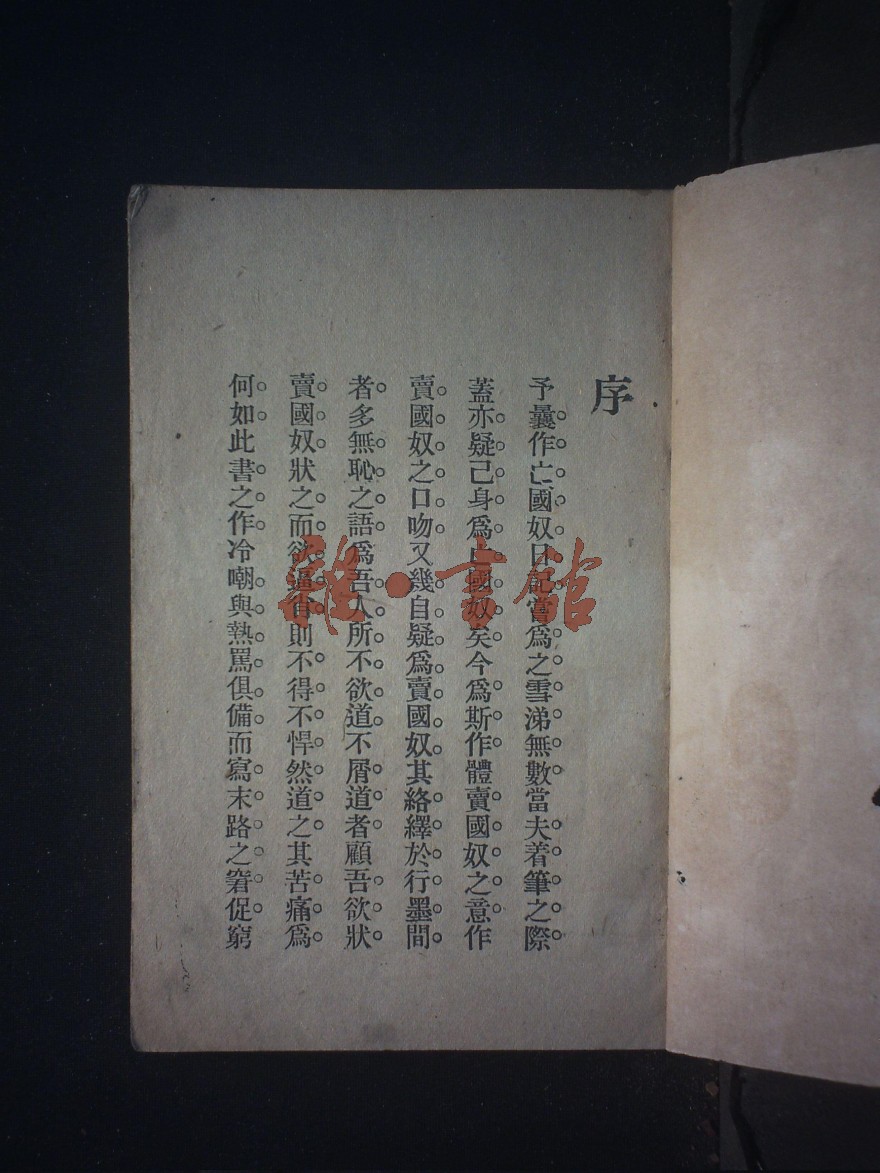 序
予曩作亡國奴日記嘗爲之雪涕無數當夫着筆之際
蓋亦疑己身爲亡國奴矣今爲斯作體賣國奴之意作
賣國奴之口吻又幾自疑爲賣國奴其絡繹於行墨間
者多無恥之語爲吾人所不欲道不屑道者顧吾欲狀
賣國奴狀之而欲逼肖則不得不悍然道之其苦痛爲
何如此書之作冷嘲與熱罵俱備而寫末路之窘促窮
雜·書館